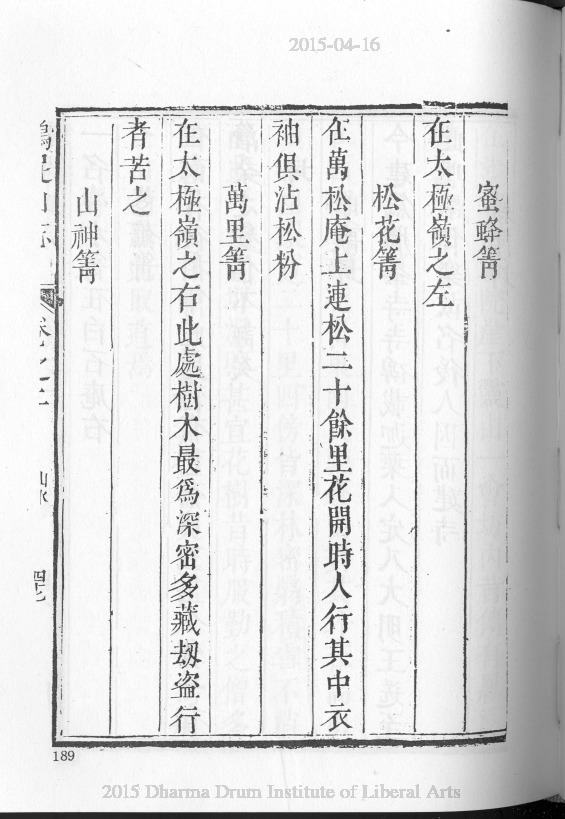 2015-04-16
蜜蜂箐
在太極嶺之左
松花箐
在萬松庵上連松二十餘里花開時人行其中衣
袖俱沾松粉
萬里箐
在太極嶺之右此處樹木最爲深密多藏刼盜行
者苦之
山神箐
山水
189
2015 Dharma Drum Institute of Liberal Arts